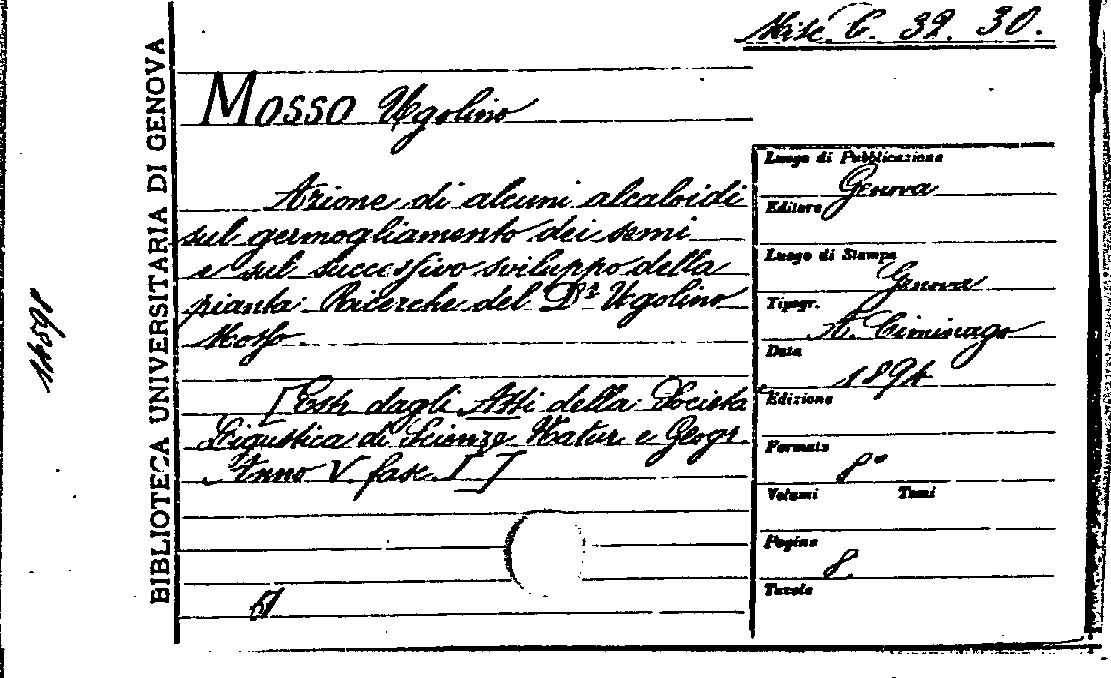 Misc. C. 32. 30.
BIBLIOTECA UNIVERSITARIA DI GENOVA
MOSSO Ugolino
Azione di alcuni alcaloidi
sul germogliamento dei semi
e sul successivo sviluppo della
pianta. Ricerche del Dr. Ugolino
Mosso.
[Estr. dagli Atti della Società
Ligustica di Scienze Natur. e Geogr.
Anno V fasc. I]
Luogo di Pubblicazione
Genova
Editore
Luogo di Stampa
Genova
Tipogr.
A. Ciminago
Data
1894
Edizione
Formato
8°
Volumi Tomi
Pagine
8.
Tavole